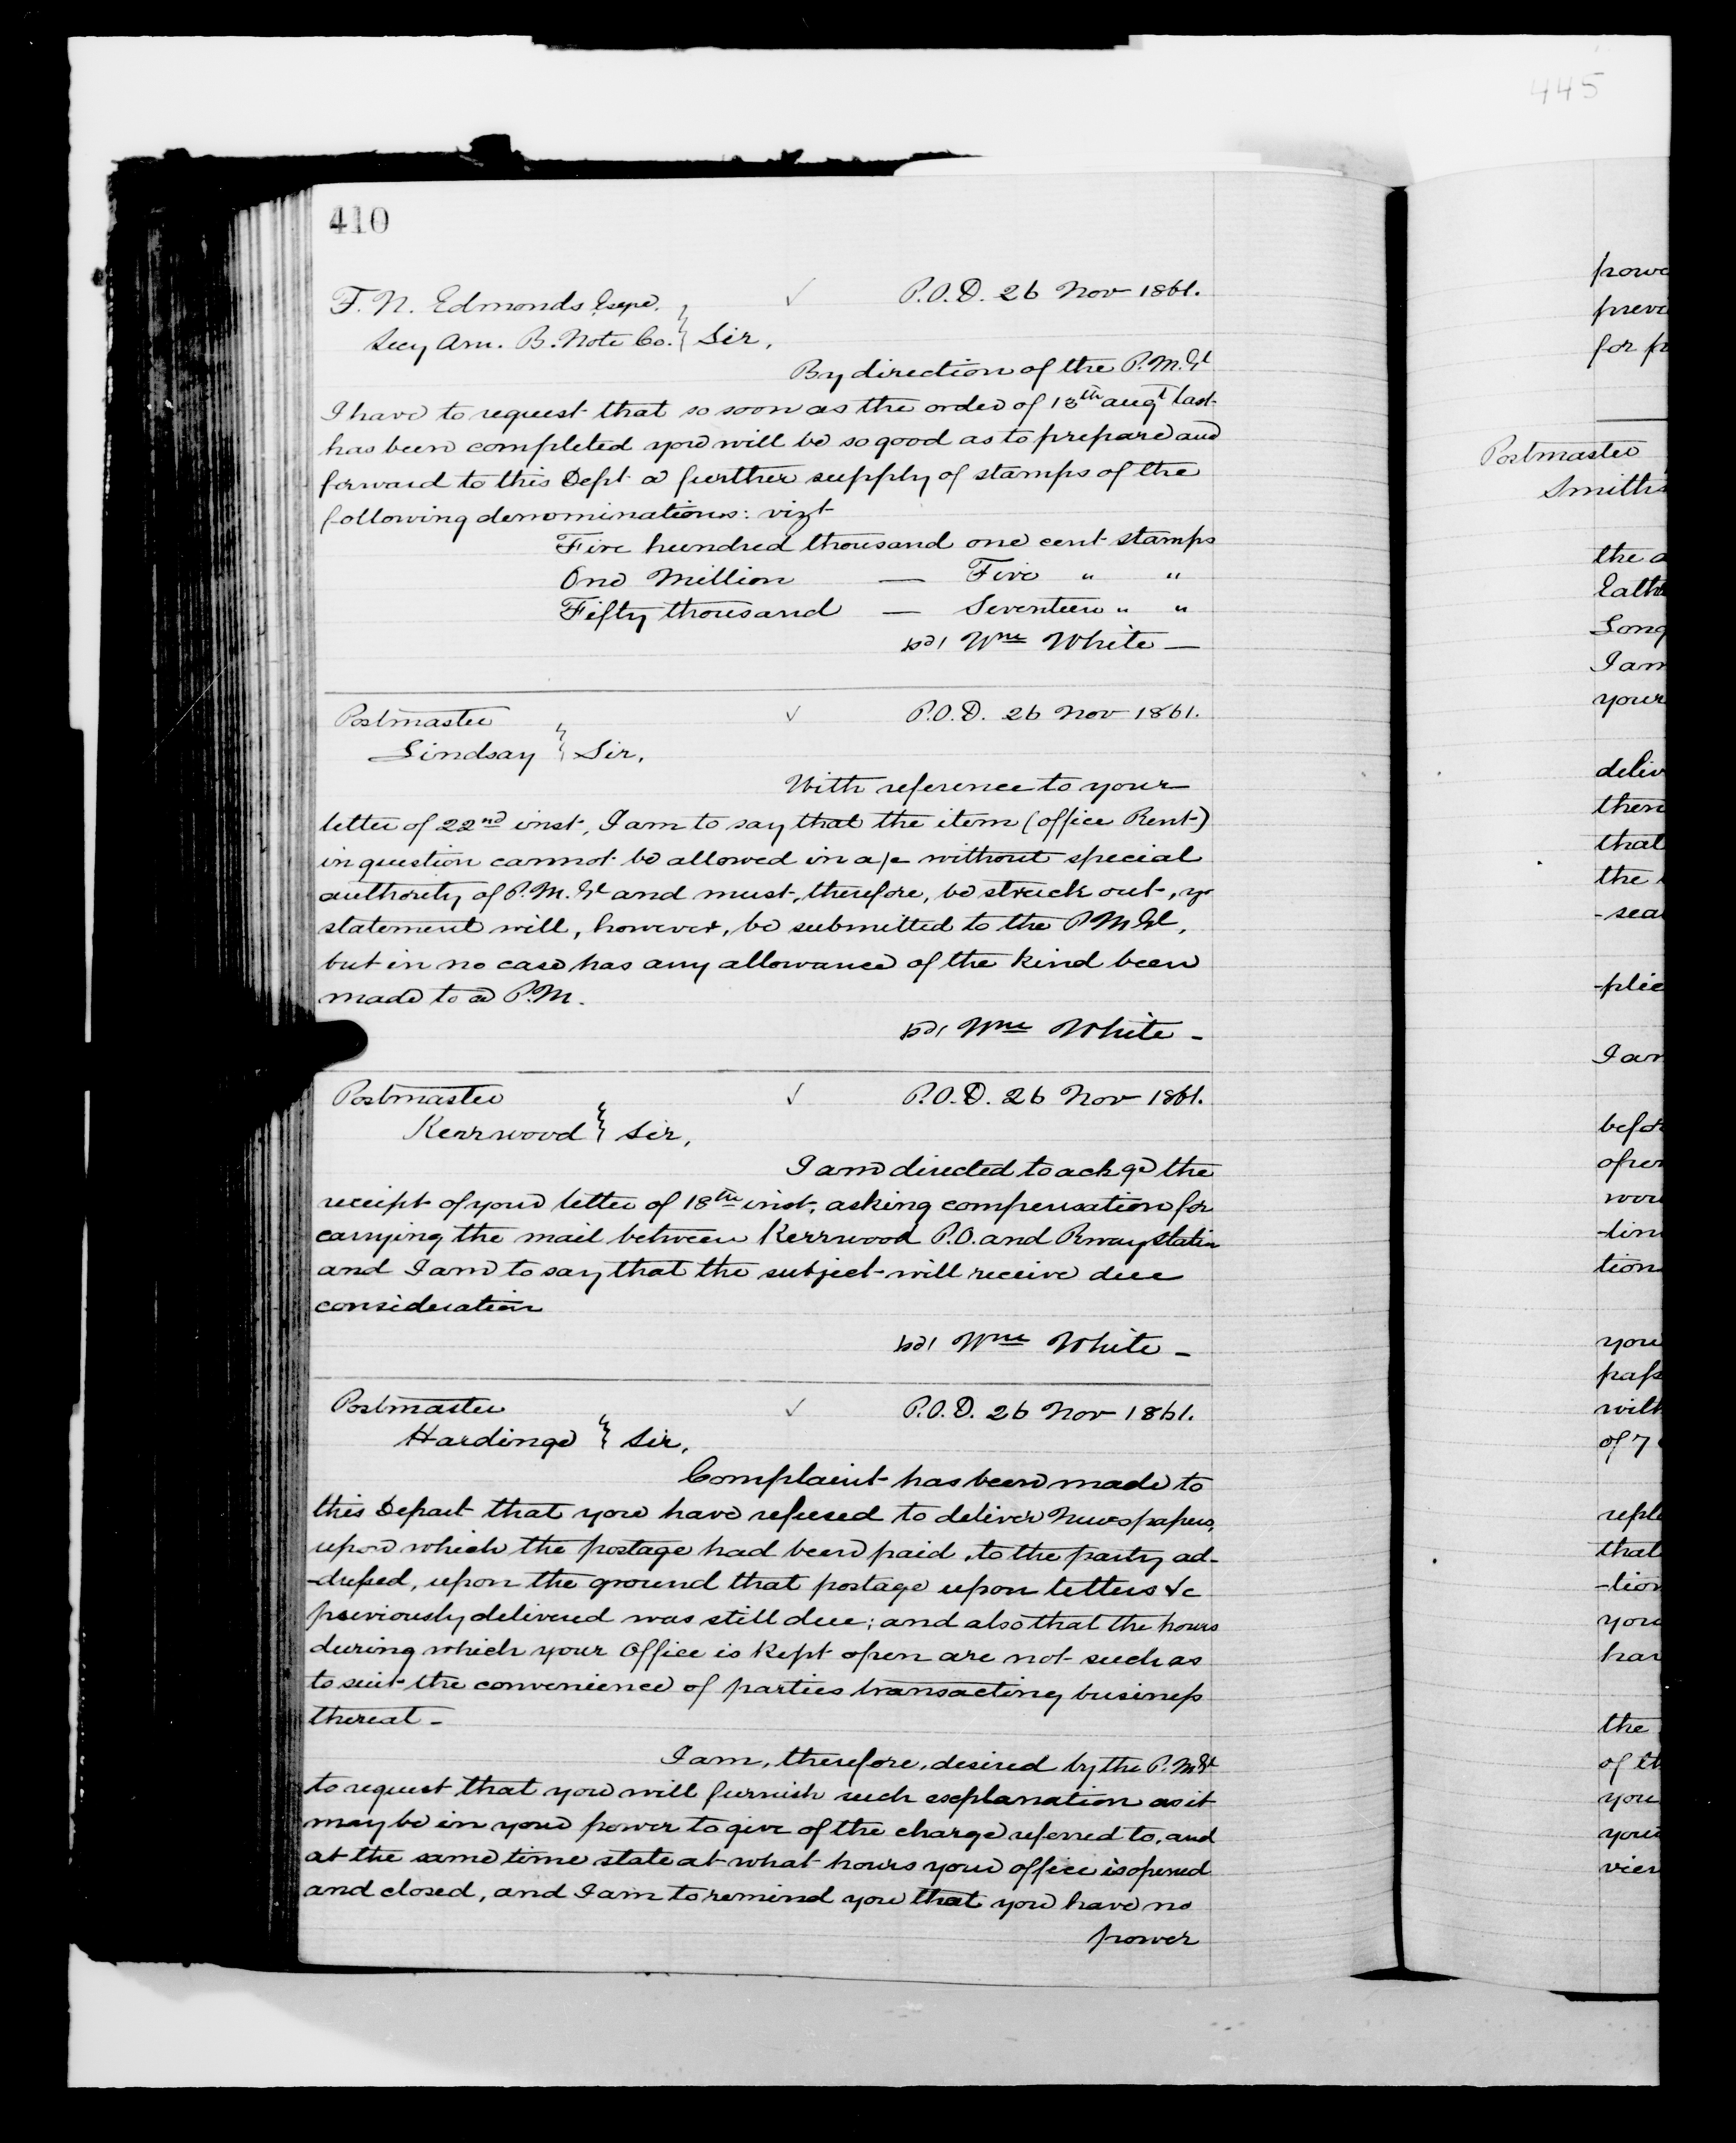 445
410
F. N. Edmonds Esqre. ✓ P.O.D. 26 Nov 1861.
Secy Am. B. Note Co. } Sir,
By direction of the P.M.Gl
I have to request that so soon as the order of 13th augt last
has been completed you will be so good as to prepare and
forward to this Dept a further supply of stamps of the
following denominations: vizt
Five hundred thousand one cent stamps
One Million — Five " "
Fifty thousand — Seventeen " "
sd/ Wm White —
Postmaster ✓ P.O.D. 26 Nov 1861.
Lindsay } Sir,
With reference to your
letter of 22nd inst, I am to say that the item (office Rent)
in question cannot be allowed in a/c without special
authority of P.M.Gl and must, therefore, be struck out, yr
statement will, however, be submitted to the P M Gl,
but in no case has any allowance of the kind been
made to a P.M.
sd/ Wm White -
Postmaster ✓ P.O.D. 26 Nov 1861.
Kerrwood } Sir,
I am directed to ackge the
receipt of your letter of 18th inst, asking compensation for
carrying the mail between Kerrwood P.O. and Rway Station
and I am to say that the subject will receive due
consideration
sd/ Wm White -
Postmaster ✓ P.O.D. 26 Nov 1861.
Hardinge } Sir,
Complaint has been made to
this Depart that you have refused to deliver Newspapers,
upon which the postage had been paid, to the party ad-
-dressed, upon the ground that postage upon letters &c
previously delivered was still due; and also that the hours
during which your Office is kept open are not such as
to suit the convenience of parties transacting business
thereat -
I am, therefore, desired by the P.M.Gl
to request that you will furnish such explanation as it
may be in your power to give of the charge referred to, and
at the same time state at what hours your office is opened
and closed, and I am to remind you that you have no
power
powe
previ
for
Postmaster
Smiths
the
Long
I am
your
deliv
then
that
the
-sea
-plie
I am
befor
open
wou
-tin
tion
you
pass
with
of 7
reple
that
-tion
you
har
the
of th
you
your
view